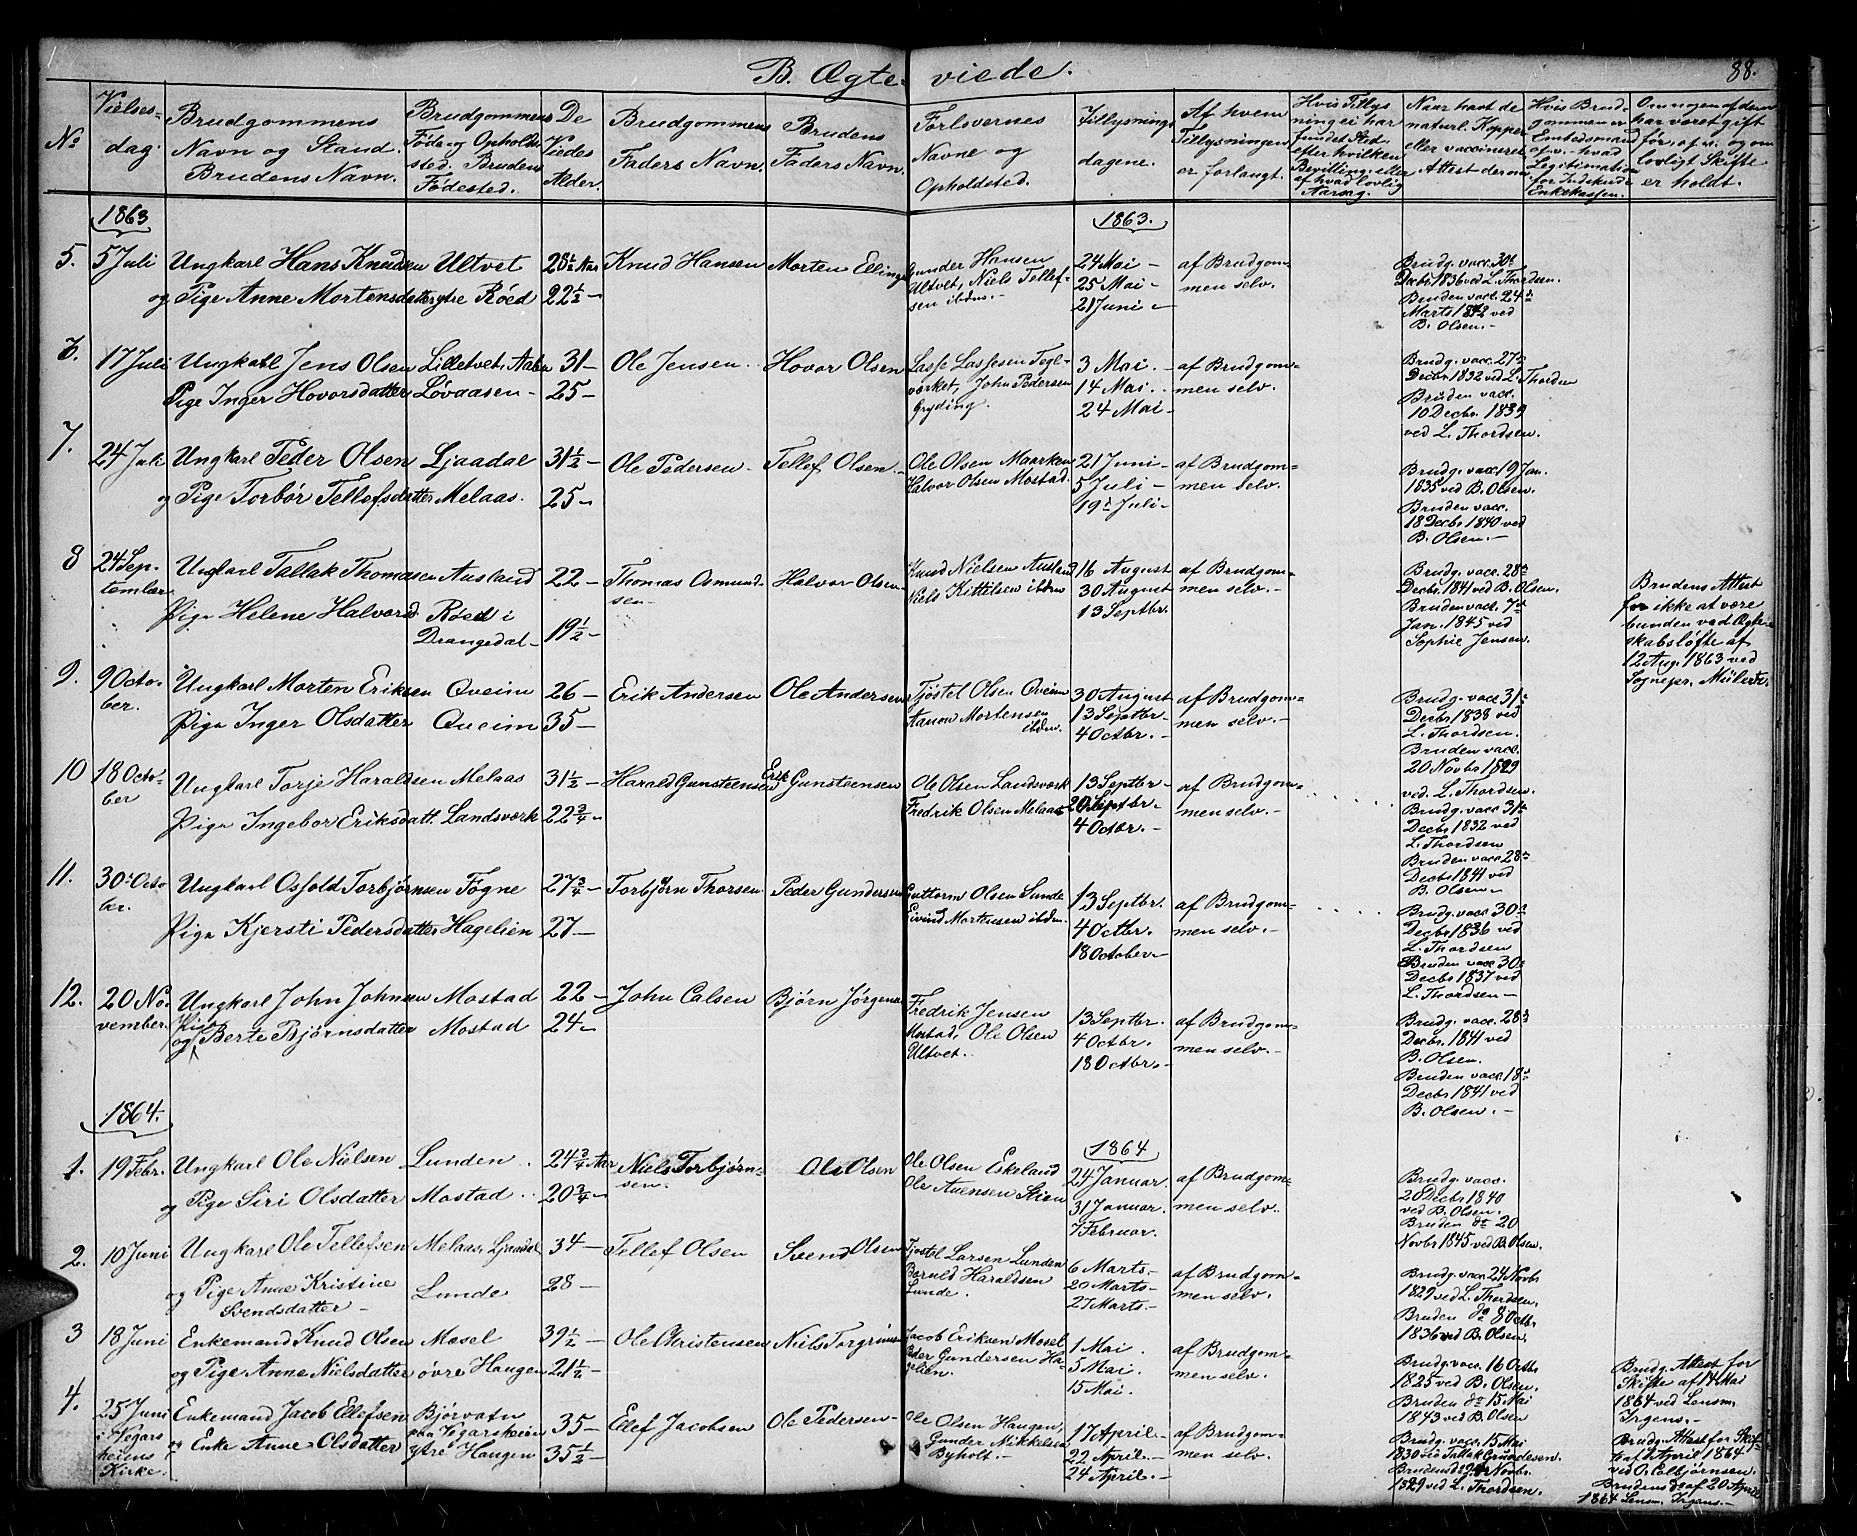 B. Ægte- viede.
88.
No
Vielses-
dag.
Brudgommens
Navn og Stand.
Brudens Navn.
Brudgommens
Føde- og Opholds-
sted. Brudens
Fødested.
De
Viedes
Alder.
Brudgommens
Faders Navn.
Brudens
Faders Navn.
Forlovernes
Navne og
Opholdsted.
Tillysnings
dagene.
Af hvem
Tillysningen
er forlangt.
Hvis Tillys
ning ei har
fundet Sted,
efter hvilken
Bevilling eller
af hvad lovlig
Aarsag.
Naar havt de
naturl. Kopper
eller vaccineret
Attest derom
Hvis Brud-
gommen er
Embedsmand
el. v. - hvad
Legitimation
for Indskud i
Enkekassen.
Om nogen af dem
har været gift
før, af v. og om
lovligt Skifte
er holdt.
1863
1863.
5. 5 Juli Ungkarl Hans Knudsen Ultvet 28½ Aar Knud Hansen Morten Ellings
og Pige Anne Mortensdatter ytre Röed 22½ -
Gunder Hansen
Ultvet, Niels Tellef-
sen ibdm. -
24 Mai -
25 Mai -
21 Juni -
af Brudgom-
men selv.
Brudg. vacc. 30te
Decbr 1836 ved L. Thordsen.
Bruden vacc. 24de
Marts 1842 ved
B. Olsen. -
6. 17 Juli Ungkarl Jens Olsen Lilletvet, Aabn 31 - Ole Jensen Hovor Olsen
Pige Inger Hovorsdatter Løvaasen - 25 -
Lasse Lassesen Tegl-
værket, John Pedersen
Gryding.
3 Mai. -
14 Mai. -
24 Mai -
af Brudgom-
men selv.
Brudg. vacc. 27de
Decbr 1832 ved L. Thordsen
Bruden vacc.
10 Decbr. 1839
ved L. Thordsen.
7. 24 Juli Ungkarl Peder Olsen Ljaadal 31½ - Ole Pedersen - Tellef Olsen -
og Pige Torbør Tellefsdatter Melaas. 25 -
Ole Olsen Maarken
Halvor Olsen Mostad.
21 Juni -
5 Juli -
19de Juli -
af Brudgom-
men selv.
Brudg. vacc. 19 Jan.
1835 ved B. Olsen.
Bruden vacc.
18 Decbr 1840 ved
B. Olsen. -
8 24 Sep-
tember
Ungkarl Tallak Thomasen Ausland 22 - Thomas Osmund-
sen -
Halvor Olsen
Pige Helene Halvorsd. Röed i
Drangedal - 19½ -
Knud Nielsen Ausland
Niels Kittelsen ibdm
16 August
30 August
13 Septbr.
af Brudgom-
men selv. -
Brudg. vacc. 28de
Decbr. 1841 ved B. Olsen.
Bruden vacc. 7de
Jan. 1845 ved
Sophie Jensen.
Brudens Attest
for ikke at være
bunden ved Ægte-
skabsløfte af
12 Aug. 1863 ved
Sognepr.
9. 9 Octo-
ber.
Ungkarl Morten Eriksen Oveim 26 - Erik Andersen Ole Andersen
Pige Inger Olsdatter Oveim 35 -
Tjöstel Olsen Oveim
Aanon Mortensen
ibdm.
30 August
13 Septbr -
4 Octbr. -
af Brudgom-
men selv. -
Brudg. vacc. 31te
Decbr 1838 ved
L. Thordsen.
Bruden vacc.
20 Novbr 1829
ved. L. Thordsen.
10 18 Octo-
ber
Ungkarl Torje Haraldsen Melaas 31½ - Harald Gunsteensen Erik Gunsteensen
Pige Ingebor Eriksdatt. Landsværk 22¾ -
Ole Olsen Landsværk
Fredrik Olsen Melaas
13 Septbr -
20 Septbr. -
4 Octbr. -
af Brudgom-
men selv. -
Brudg. vacc 31te
Decbr 1832 ved
L. Thordsen
Bruden vacc 28de
Decbr 1841 ved
B. Olsen -
11. 30te Octo
ber.
Ungkarl Osfold Torbjörnsen Fögne 27¾ - Torbjörn Thorsen. Peder Gundersen
Pige Kjersti Pedersdatter Hagelien 27 -
Guttorm Olsen Sunde
Eivind Mortensen ibdm.
13 Septbr.
4 Octbr.
18 October -
af Brudgom-
men selv. -
Brudg. vacc. 30te
Decbr 1836 ved
L. Thordsen
Bruden vacc 30te
Decbr 1837 ved
L. Thordsen -
12. 20 No-
vember.
Ungkarl John Johnsen Mostad 22 - John Calsen Bjørn Jørgens
og Pige Berte Bjørnsdatter Mostad 24 -
Fredrik Jensen
Mostad, Ole Olsen
Ultvet.
13 Septbr.
4 Octbr.
18 Octbr. -
af Brudgom-
men selv. -
Brudg. vacc. 28de
Decbr. 1841 ved
B. Olsen.
Bruden vacc. 18de
Decbr 1841 ved
B. Olsen. -
1864.
1864
1. 19 Febr. Ungkarl Ole Nielsen Lunden 24¾ Aar Niels Torbjørn-
sen.
Ole Olsen
og Pige Siri Olsdatter Mostad 20¾ -
Ole Olsen Eskeland
Ole Auensen Stien
24 Januar.
31 Januar.
7 Februar.
af Brudgom-
men selv.
Brudg. vacc.
20 Decbr 1840
ved B. Olsen.
Bruden do 20
Novbr 1845 ved B. Olsen.
2. 10 Juni Ungkarl Ole Tellefsen Melaas, Ljaadal 34 - Tellef Olsen Svend Olsen
og Pige Anne Kristine
Svendsdatter - Lunde 28 -
Tjöstel Larsen Lunden
Beruld Haraldsen
Lunde.
6 Marts. -
20 Marts -
27 Marts. -
af Brudgom-
men selv. -
Brudg. vacc. 24 Novbr
1829 ved L. Thordsen.
Bruden do 8 Octb.
1836 ved B. Olsen.
3 18 Juni Enkemand Knud Olsen Mosel 39½ - Ole Christensen Niels Torgrims
og Pige Anne Nielsdatter øvre Haugen 21½ -
Jacob Eriksen Mosel
Peder Gundersen Ha-
gelien.
1 Mai.
5 Mai.
15 Mai.
af Brudgom-
men selv.
Brudg. vacc. 16 Octbr
1825 ved B. Olsen.
Bruden do 15 Mai
1843 ved B. Olsen
Brudg. Attest for
Skifte af 14 Mai
1864 ved Lensm.
Irgens. -
4. 25 Juni
i Vegars
heiens
Kirke.
Enkemand Jacob Ellefsen Bjørvatn
paa Vegarsheien 35 - Ellef Jacobsen Ole Pedersen -
og Enke Anne Olsdatter ytre Haugen 35½ -
Ole Olsen Haugen,
Gunder Mikkelsen
Byholt. -
17 April. -
22 April. -
24 April. -
af Brudgom-
men selv.
Brudg. vacc. 15 Mai
1830 ved Tallak Gundesen.
Bruden do 24 Novbr.
1829 ved L. Thordsen.
Brudg. Attest for Skif-
te af 1 April 1864
ved O. Eilbjørnsen.
Brudens do af 20 April
1864 Lensm. Irgens. -